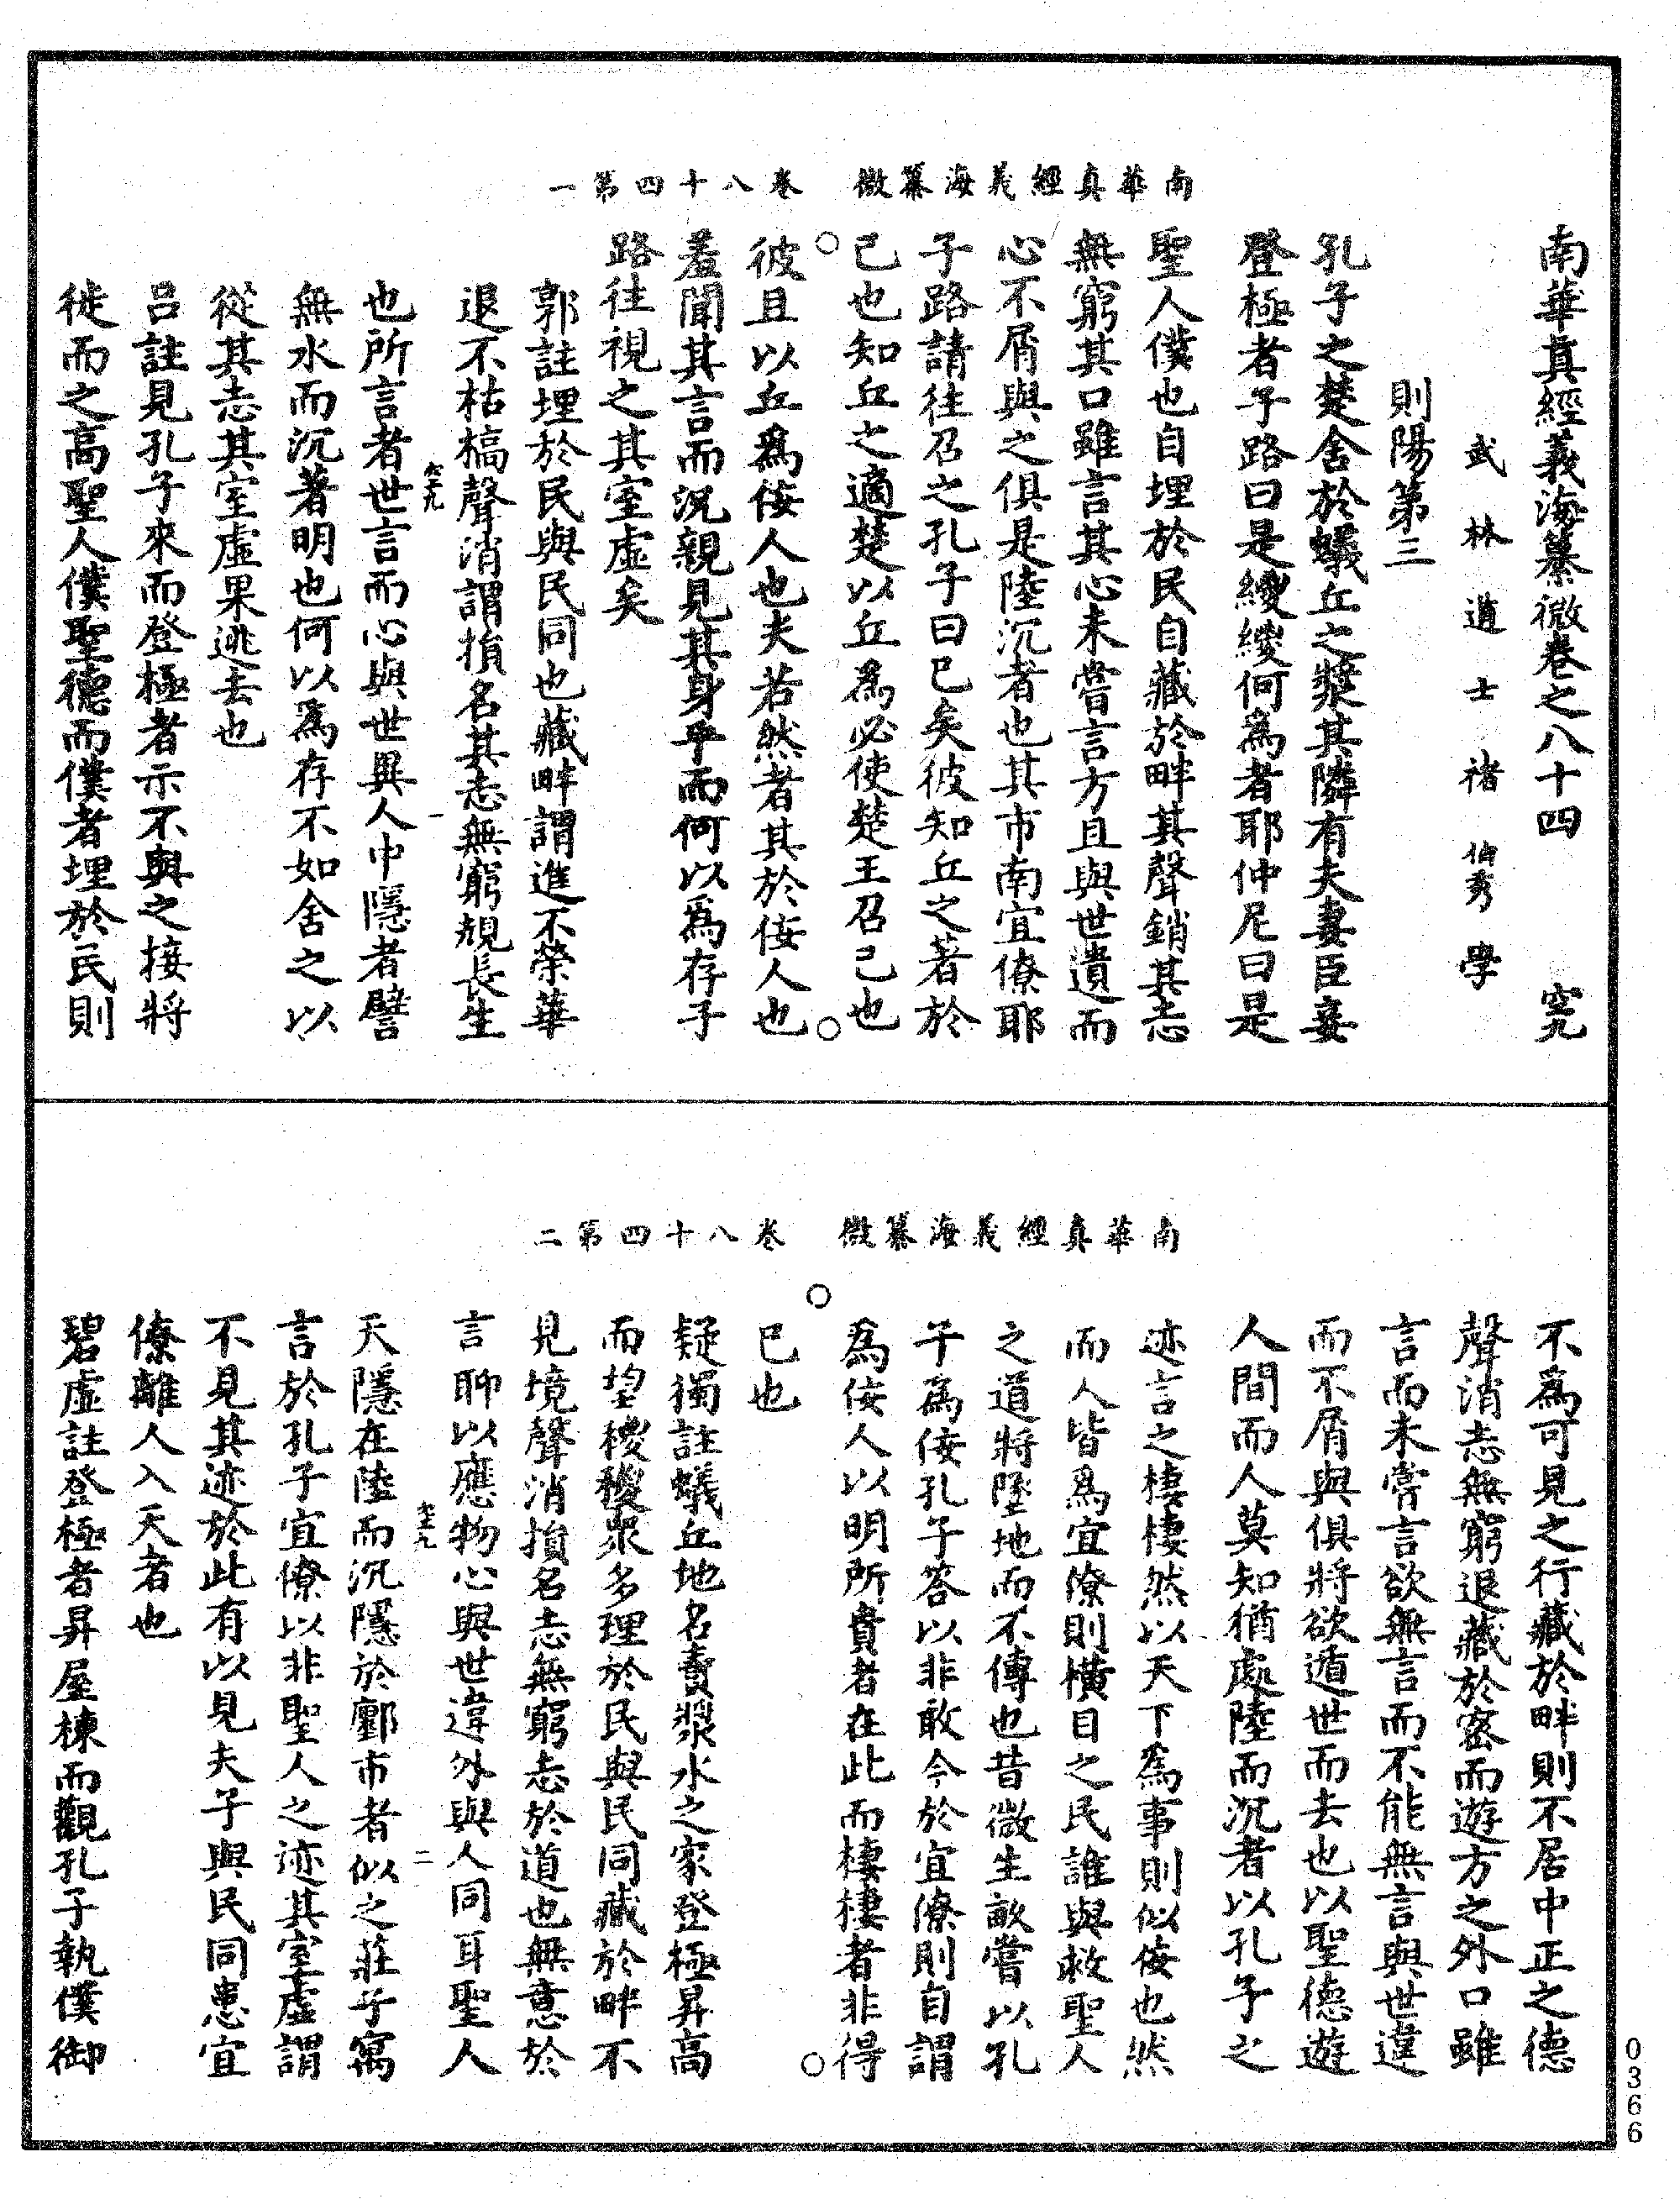 南華真經義海纂微　卷八十四第一
南華真經義海纂微卷之八十四　究
武林道士褚伯秀學
則陽第三
孔子之楚舍於蟻丘之漿其隣有夫妻臣妾
登極者子路曰是稯稯何為者耶仲尼曰是
聖人僕也自埋於民自藏於畔其聲銷其志
無窮其口雖言其心未嘗言方且與世違而
心不屑與之俱是陸沉者也其市南宜僚耶
子路請往召之孔子曰已矣彼知丘之著於
己也知丘之適楚以丘為必使楚王召己也
彼且以丘為佞人也夫若然者其於佞人也
羞聞其言而況親見其身乎而何以為存子
路往視之其室虛矣
郭註埋於民與民同也藏畔謂進不榮華
退不枯槁聲消謂損名其志無窮規長生
也所言者世言而心與世異人中隱者譬
無水而沉著明也何以為存不如舍之以
從其志其室虛果逃去也
呂註見孔子來而登極者示不與之接將
徙而之高聖人僕聖德而僕者埋於民則
南華真經義海纂微　卷八十四第二
不為可見之行藏於畔則不居中正之德
聲消志無窮退藏於密而遊方之外口雖
言而未嘗言欲無言而不能無言與世違
而不屑與俱將欲遁世而去也以聖德遊
人間而人莫知猶處陸而沉者以孔子之
迹言之棲棲然以天下為事則似佞也然
而人皆為宜僚則橫目之民誰與救聖人
之道將墜地而不傳也昔微生畝嘗以孔
子為佞孔子答以非敢今於宜僚則自謂
為佞人以明所貴者在此而棲棲者非得
已也
疑獨註蟻丘地名賣漿水之家登極昇高
而望稯稯眾多理於民與民同藏於畔不
見境聲消損名志無窮志於道也無意於
言聊以應物心與世違外與人同耳聖人
天隱在陸而沉隱於鄽市者似之莊子寓
言於孔子宜僚以非聖人之迹其室虛謂
不見其迹於此有以見夫子與民同患宜
僚離人入天者也
碧虛註登極者昇屋棟而觀孔子執僕御
0366